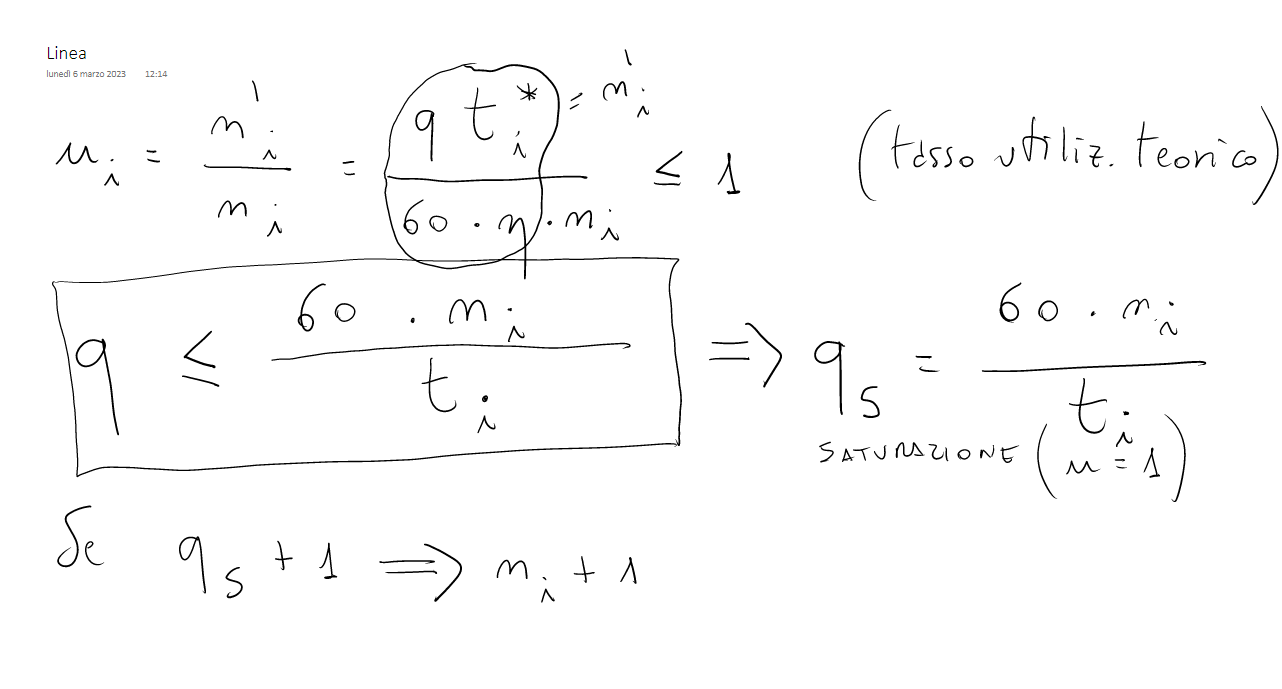 Linea
lunedì 6 marzo 2023 12:14
u_i = n'_i / n_i = q t_i^* / (60 · η · n_i) ≤ 1 (tasso utiliz. teorico)
= n'_i
q ≤ 60 · n_i / t_i ⇒ q_s = 60 · n_i / t_i
SATURAZIONE (u = 1)
Se q_s + 1 ⇒ n_i + 1